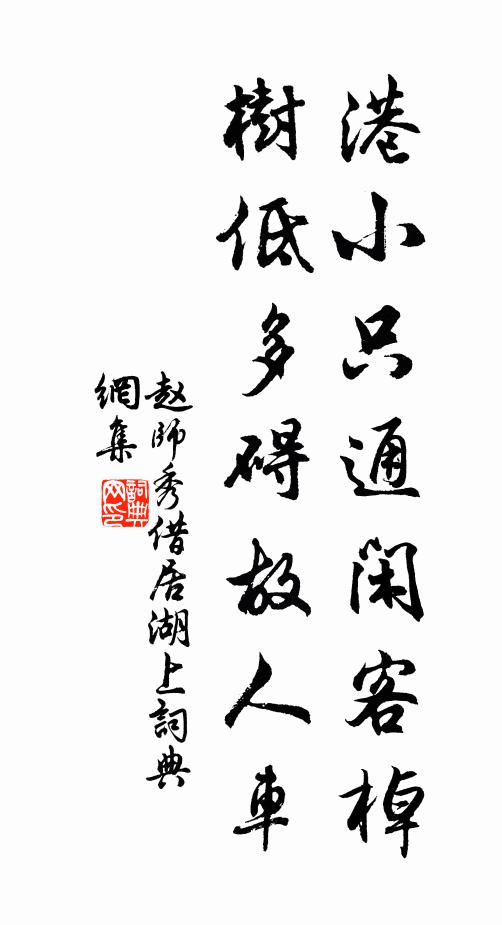 港小只通闲客棹
樹低多碍故人車
赵師秀借居湖上詞典
網集
詞典
网印